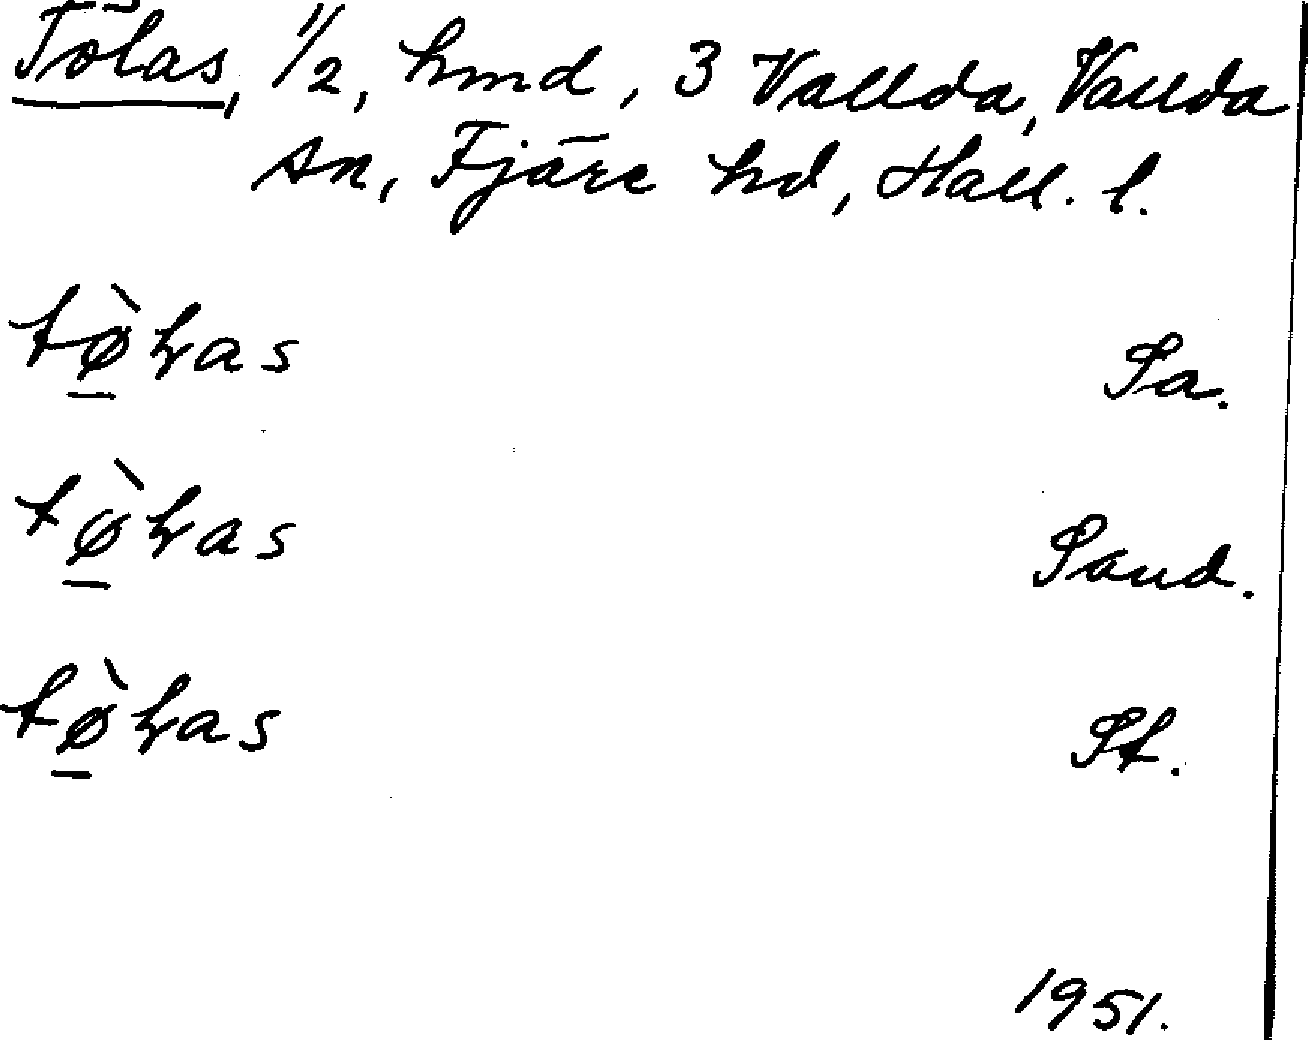 Tölas, 1/2, hmd, 3 Vallda, Vallda
sn, Fjäre hd, Hall. l.
tø̀ɫas Sa.
tø̀ɫas Sand.
tø̀ɫas St.
1951.